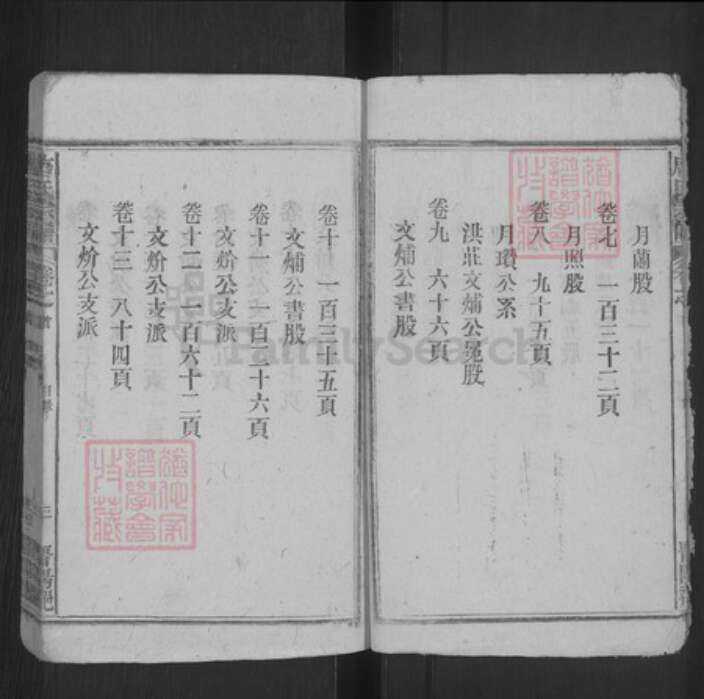 月蘭股
卷七 一百三十二頁
月照股
卷八 九十五頁
月瓚公系
洪莊文炳公冕股
卷九 六十六頁
文炳公書股
卷十 一百三十五頁
文炳公書股
卷十一 一百三十六頁
文炌公支派
卷十二 一百六十二頁
文炌公支派
卷十三 八十四頁
文炌公支派
三
FamilySearch
譜學會
特藏
譜學會
特藏